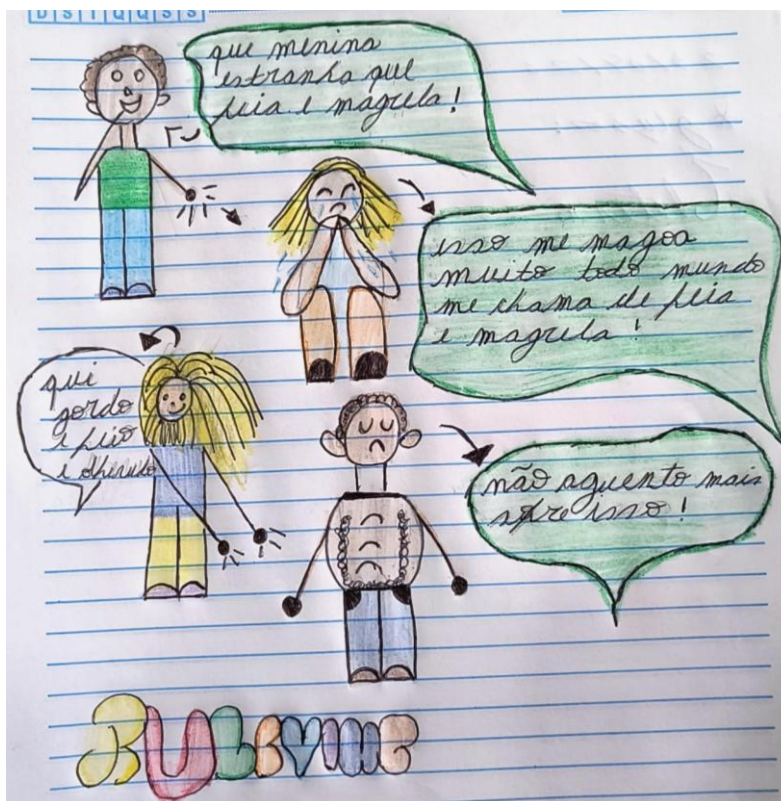 D S T Q Q S S
que menina
estranha que
feia e magrela!
isso me magoa
muito todo mundo
me chama de feia
e magrela!
qui
gordo
e feio
e
não aguento mais
isso!
BULEYING